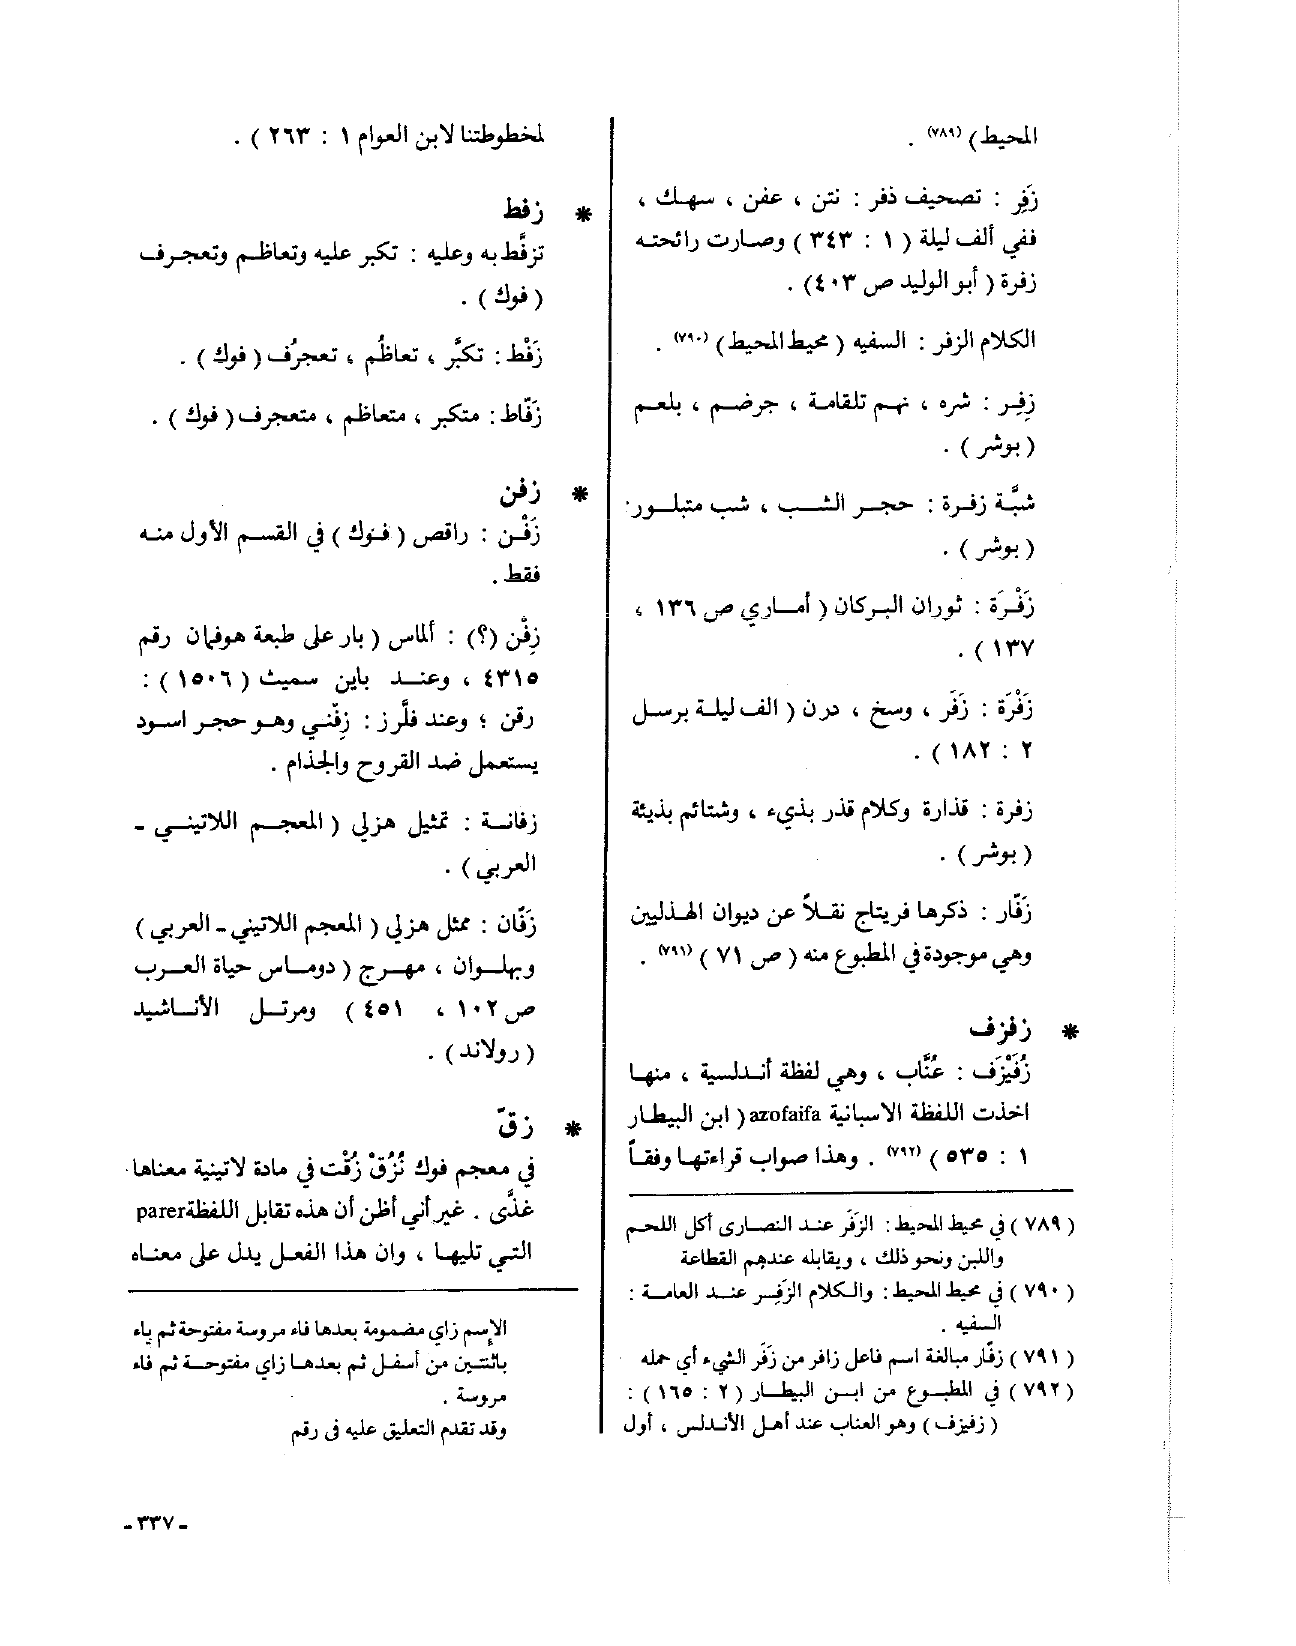 المحيط) (٧٨٩) .
زَفِر : تصحيف ذفر : نتن ، عفن ، سهك ،
ففي ألف ليلة ( ١ : ٣٤٣ ) وصارت رائحته
زفرة ( أبو الوليد ص ٤٠٣) .
الكلام الزفر : السفيه ( محيط المحيط ) (٧٩٠) .
زِفِر : شره ، نهم تلقامة ، جرضم ، بلعم
( بوشر ) .
شبَّة زفرة : حجر الشب ، شب متبلور.
( بوشر ) .
زَفْرَة : ثوران البركان ( أماري ص ١٣٦ ،
١٣٧ ) .
زَفْرَة : زَفَر ، وسخ ، درن ( الف ليلة برسل
٢ : ١٨٢ ) .
زفرة : قذارة وكلام قذر بذيء ، وشتائم بذيئة
( بوشر ) .
زَفّار : ذكرها فريتاج نقلاً عن ديوان الهذليين
وهي موجودة في المطبوع منه ( ص ٧١ ) (٧٩١) .
* زفزف
زُفَيْزَف : عُنَّاب ، وهي لفظة أندلسية ، منها
اخذت اللفظة الاسبانية azofaifa ( ابن البيطار
١ : ٥٣٥ ) (٧٩٢) . وهذا صواب قراءتها وفقاً
( ٧٨٩ ) في محيط المحيط : الزَفَر عند النصارى أكل اللحم
واللبن ونحو ذلك ، ويقابله عندهم القطاعة
( ٧٩٠ ) في محيط المحيط : والكلام الزَفِر عند العامة :
السفيه .
( ٧٩١ ) زفّار مبالغة اسم فاعل زافر من زَفَر الشيء أي حمله
( ٧٩٢ ) في المطبوع من ابن البيطار ( ٢ : ١٦٥ ) :
( زفيزف ) وهو العناب عند أهل الأندلس ، أول
لمخطوطتنا لابن العوام ١ : ٢٦٣ ) .
* زفط
تزفَّط به وعليه : تكبر عليه وتعاظم وتعجرف
( فوك ) .
زَفْط : تكبُّر ، تعاظُم ، تعجرُف ( فوك ) .
زَفّاط : متكبر ، متعاظم ، متعجرف ( فوك ) .
* زفن
زَفْن : راقص ( فوك ) في القسم الأول منه
فقط .
زِفْن (؟) : ألماس ( بار على طبعة هوفمان رقم
٤٣١٥ ، وعند باين سميث ( ١٥٠٦ ) :
رقن ؛ وعند فلَّرز : زِفّني وهو حجر اسود
يستعمل ضد القروح والجذام .
زفانة : تمثيل هزلي ( المعجم اللاتيني -
العربي ) .
زَفّان : ممثل هزلي ( المعجم اللاتيني - العربي )
وبهلوان ، مهرج ( دوماس حياة العرب
ص ١٠٢ ، ٤٥١ ) ومرتل الأناشيد
( رولاند ) .
* زقّ
في معجم فوك نُزُقْ زُقْت في مادة لاتينية معناها
غذَّى . غير أني أظن أن هذه تقابل اللفظة parer
التي تليها ، وان هذا الفعل يدل على معناه
الإسم زاي مضمومة بعدها فاء مروسة مفتوحة ثم ياء
باثنتين من أسفل ثم بعدها زاي مفتوحة ثم فاء
مروسة .
وقد تقدم التعليق عليه في رقم
- ٣٣٧ -